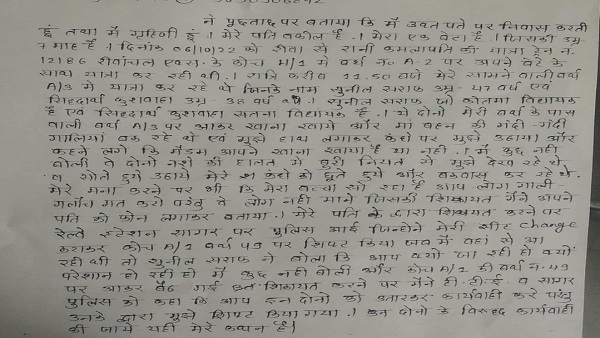 ने पुछताछ पर बताया कि मैं उक्त पते पर निवास करती
हूं तथा मैं गृहिणी हूं । मेरे पति वकील है । मेरा एक बेटा है । जिसकी उम्र
7 माह है । दिनांक 06/10/22 को रीवा से रानी कमलापति की यात्रा ट्रेन नं.
12186 रीवांचल एक्स. के कोच H/1 में बर्थ नं० A-2 पर अपने बेटे के
साथ यात्रा कर रही थी । रात्रि करीब 11.50 बजे मेरे सामने वाली बर्थ
A/3 में यात्रा कर रहे थे जिनके नाम सुनील सराफ उम्र - 47 वर्ष एवं
सिद्दार्थ कुशवाहा उम्र - 38 वर्ष थे । सुनील सराफ जो कोतमा विधायक
है एवं सिद्दार्थ कुशवाहा सतना विधायक है । ये दोनो मेरी बर्थ के पास
वाली बर्थ A/3 पर आकर खाना खाये और मां बहन की गंदी-गंदी
गालियां बक रहे थे एवं मुझे हाथ लगाकर कंधो पर मुझे उठाया और
कहने लगे कि मैडम आपने खाना खाया है या नहीं । मैं कुछ नहीं
बोली वे दोनो नशे की हालत में बुरी नियत से मुझे देख रहे थे
व सोते हुये उठाये मेरे कंधो को छूते हुये और बकवास कर रहे थे
मेरे मना करने पर भी कि मेरा बच्चा सो रहा है आप लोग गाली-
गलौंच मत करो परंतु वे लोग नहीं माने जिसकी शिकायत मैंने अपने
पति को फोन लगाकर बताया । मेरे पति के द्वारा शिकायत करने पर
रेल्वे स्टेशन सागर पर पुलिस आई जिन्होने मेरी सीट change
कराकर कोच A/1 बर्थ 49 पर शिफ्ट किया जब मैं वहां से आ
रही थी तो सुनील सराफ ने बोला कि आप क्यों जा रही हो क्यों
परेशान हो रही हो मैं कुछ नहीं बोली और कोच A/1 की बर्थ न.-49
पर आकर बैठ गई उक्त शिकायत करने पर मैंने टी.टी.ई. व सागर
पुलिस को कहा कि आप इन दोनो को उतारकर कार्यवाही करे परंतु
उनके द्वारा मुझे शिफ्ट किया गया । इन दोनो के विरुद्ध कार्यवाही
की जाये यही मेरे कथन है ।